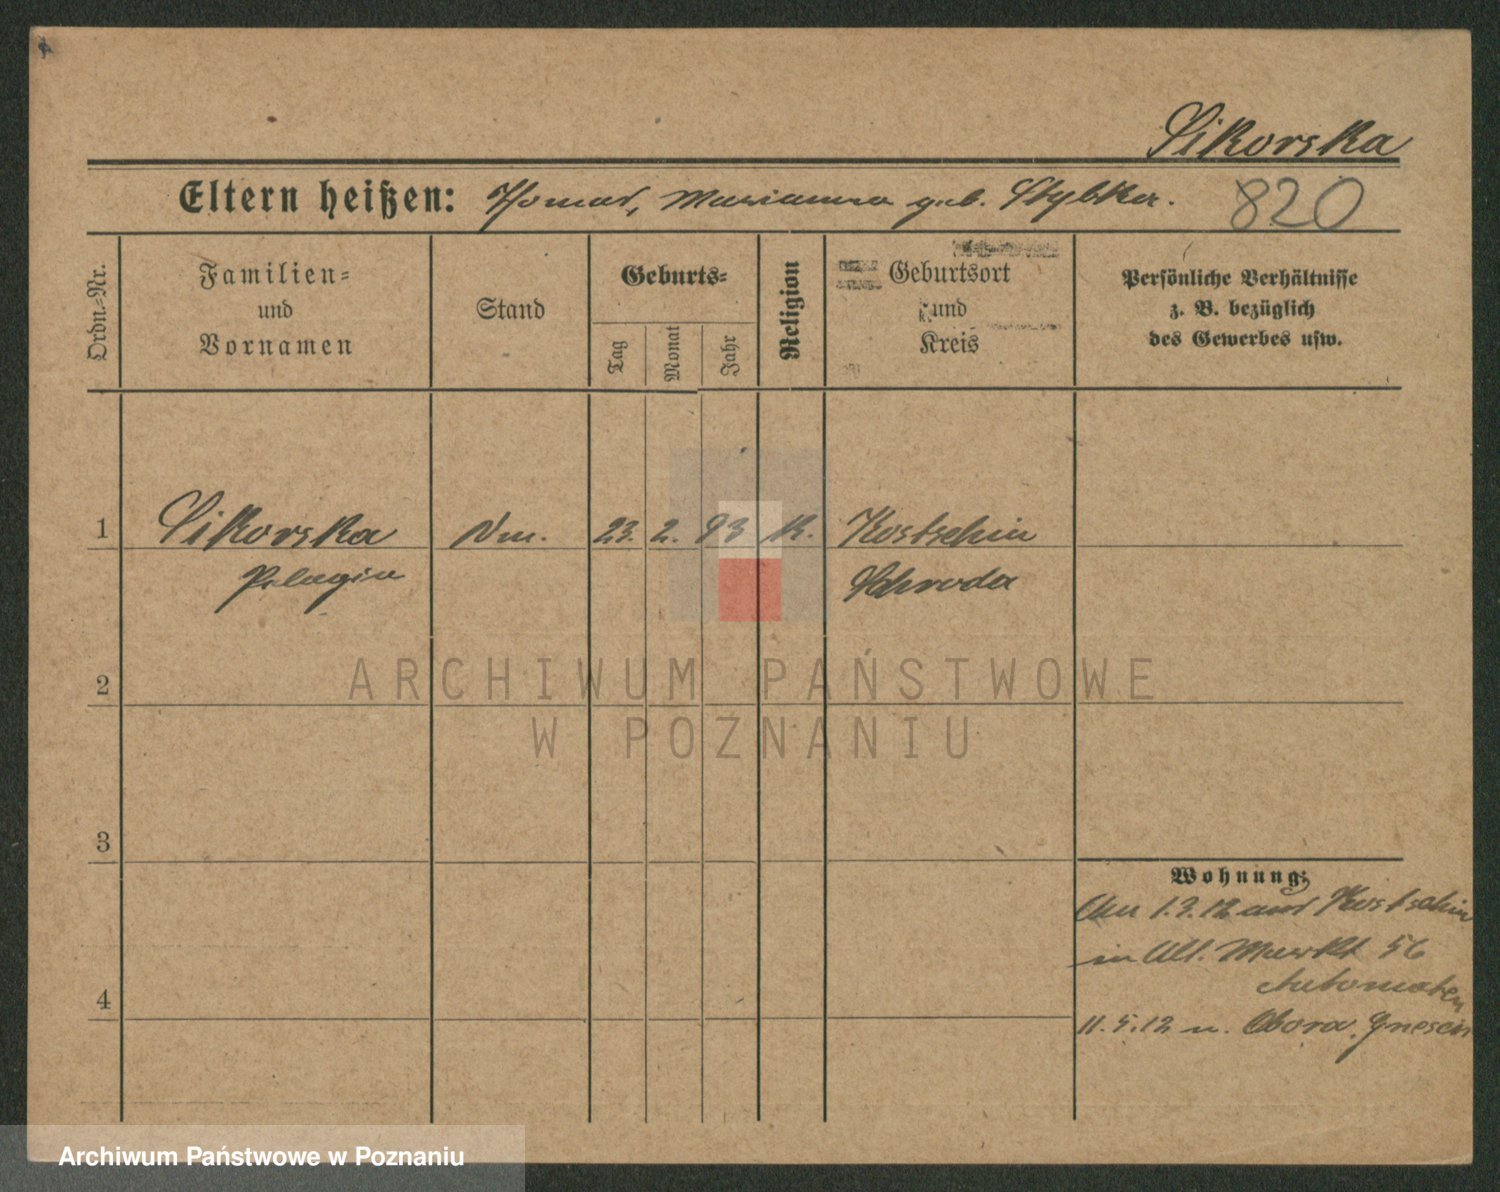 Sikorska
Eltern heißen: Thomas, Marianna geb. Stybka. 820
Ordn.-Nr.
Familien- und Vornamen
Stand
Geburts-
Tag
Monat
Jahr
Religion
Geburtsort und Kreis
Persönliche Verhältnisse
z. B. bezüglich
des Gewerbes usw.
1 Sikorska Dm. 23. 2. 93 K. Kostschin
Pelagia Schroda
2
3
4
Wohnung:
1.3.12 aus Kostschin
in Alt. Markt 56
Automaten
11.5.12 n. Obora, Gnesen
ARCHIWUM PAŃSTWOWE
W POZNANIU
Archiwum Państwowe w Poznaniu